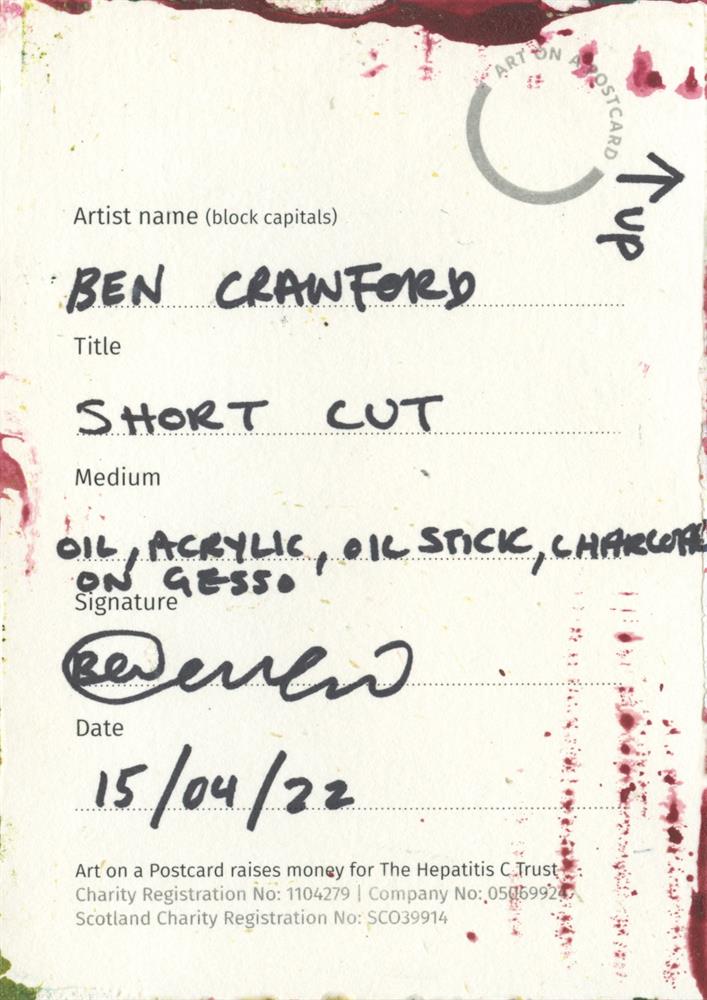 ART ON A POSTCARD
UP
Artist name (block capitals)
BEN CRAWFORD
Title
SHORT CUT
Medium
OIL, ACRYLIC, OIL STICK, CHARCOAL
ON GESSO
Signature
Ben
Date
15/04/22
Art on a Postcard raises money for The Hepatitis C Trust
Charity Registration No: 1104279 | Company No: 05069924
Scotland Charity Registration No: SCO39914